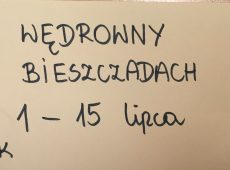 WĘDROWNY
BIESZCZADACH
1 – 15 lipca
K